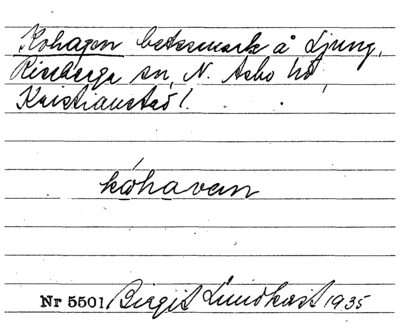 Kohagen betesmark å Ljung,
Riseberga sn, N. Åsbo hd,
Kristianstad l.
kóhavan
Nr 5501 Birgit Lundkvist 1935